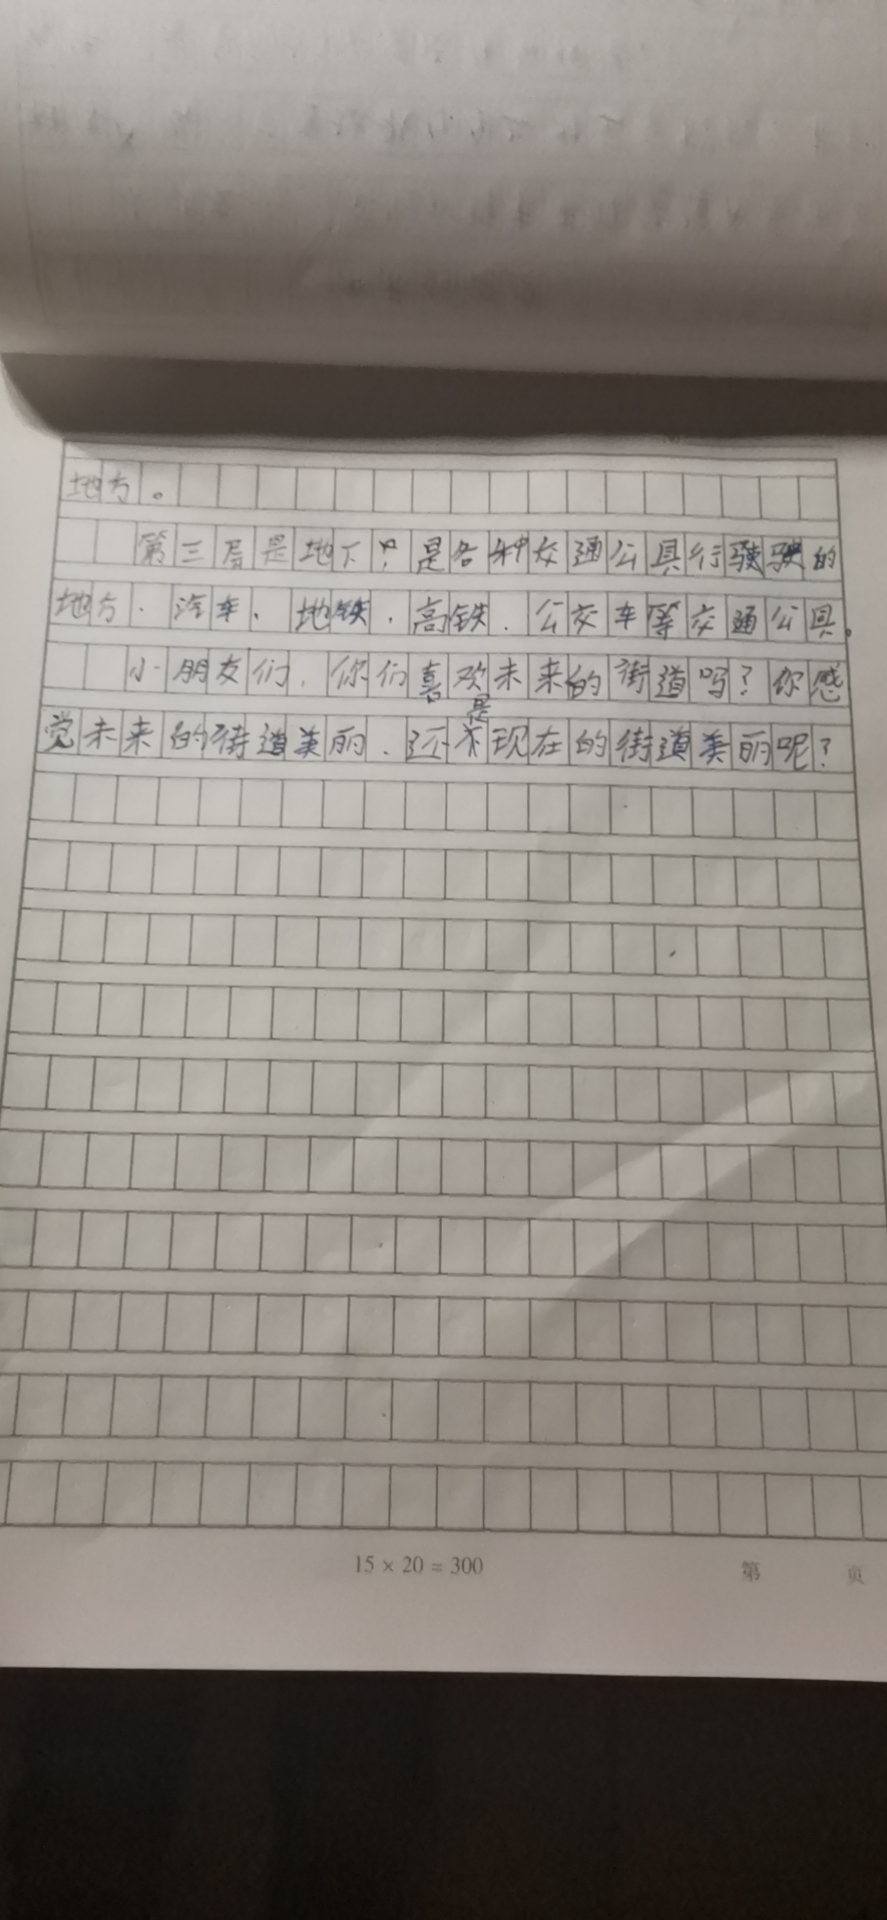 地方。
第三层是地下，是各种交通公具行驶驶的
地方．汽车．地铁．高铁．公交车等交通公具。
小朋友们．你们喜欢未来的街道吗？你感
觉未来的街道美丽．还是不现在的街道美丽呢？
15 × 20 = 300
第 页